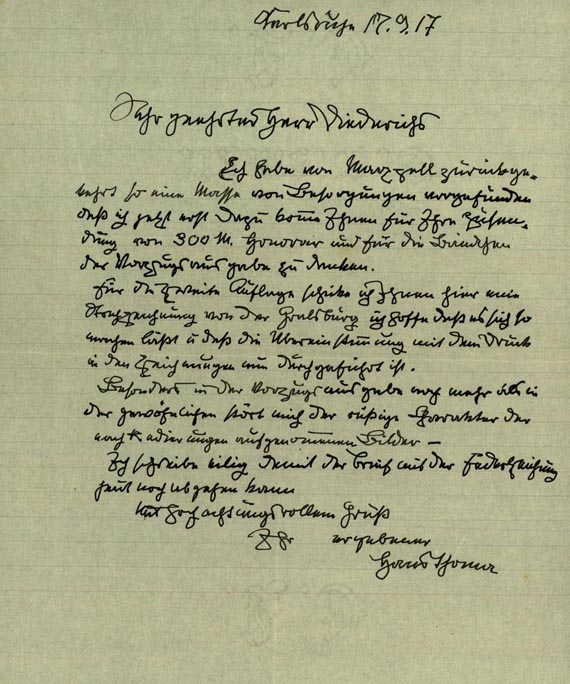 Karlsruhe 17.9.17
Sehr geehrter Herr Diederichs
Ich habe von Marxzell zurückge-
kehrt so eine Masse von Besorgungen vorgefunden
daß ich jetzt erst dazu komme Ihnen für Ihre Zusen-
dung von 300 M. Honorar und für die Bändchen
der Vorzugsausgabe zu danken.
Für die zweite Auflage schicke ich Ihnen hier eine
von der Gralsburg ich hoffe daß es sich so
machen läßt u daß die Übereinstimmung mit dem Druck
in den Zeichnungen nun durchgeführt ist.
Besonders in der Vorzugsausgabe noch mehr als in
der gewöhnlichen stört mich der rußige Charakter der
nach Radierungen aufgenommenen Bilder –
Ich schreibe eilig damit der Brief mit der Federzeichnung
heut noch abgehen kann
Mit hochachtungsvollem Gruß
Ihr ergebener
Hans Thoma